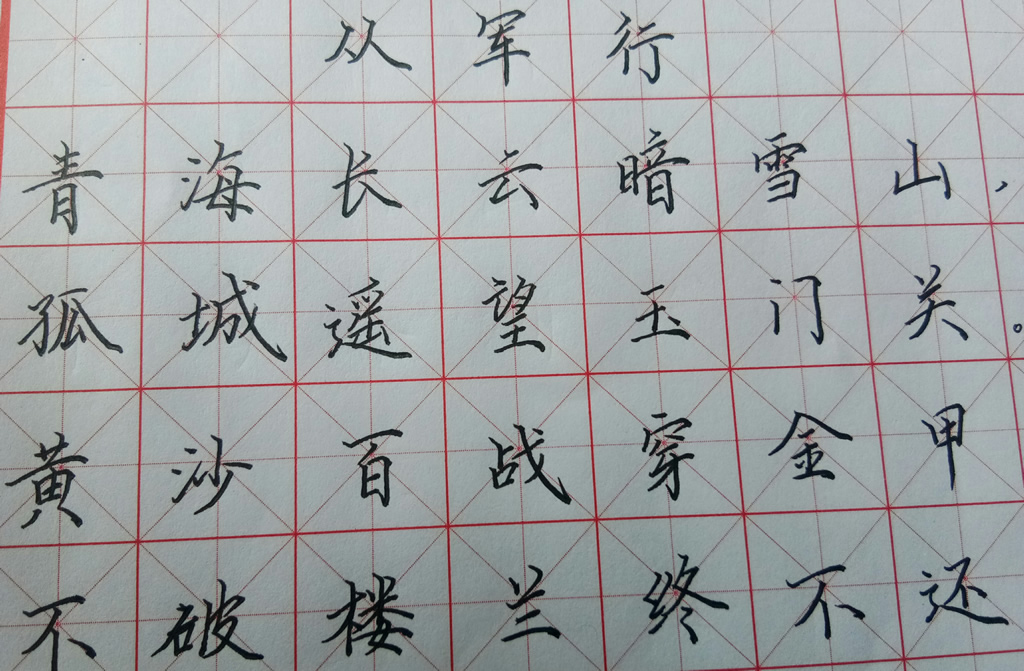 从军行
青海长云暗雪山，
孤城遥望玉门关。
黄沙百战穿金甲
不破楼兰终不还